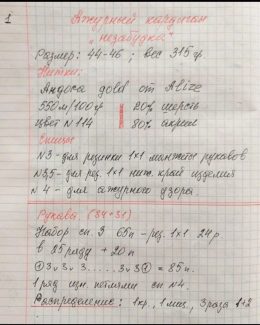 1
Ажурный кардиган
"незабудка"
Размер: 44-46; вес 315гр
Нитки:
gold от Alize
550м/100гр 20% шерсть
цвет N114 80% акрил
Спицы
N3 - для резинки 1х1 манжеты рукавов
N3,5 - для рез. 1х1 ниж. край изделия
N4 - для ажурного узора
Рукава (34+31)
Набор сп. 3 65п - рез. 1х1 24р
в 85 ряду + 20п
= 85п.
1 ряд изн. петлями сп N4.
Распределение: 1кр, 1 лиц, 3 раза 1+2